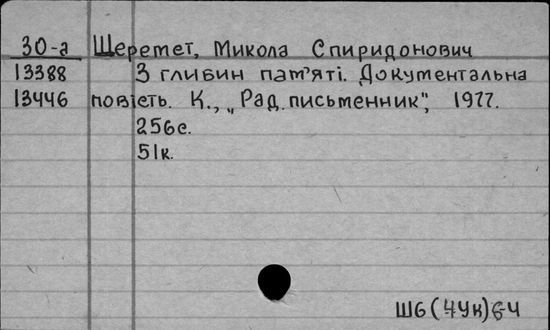 30-а Шеремет, Микола Спиридонович
13388 З глибин пам'яті. Документальна
13446 повість. К., „Рад. письменник", 1977.
256с.
51к.
Ш6(4Ук)6-4